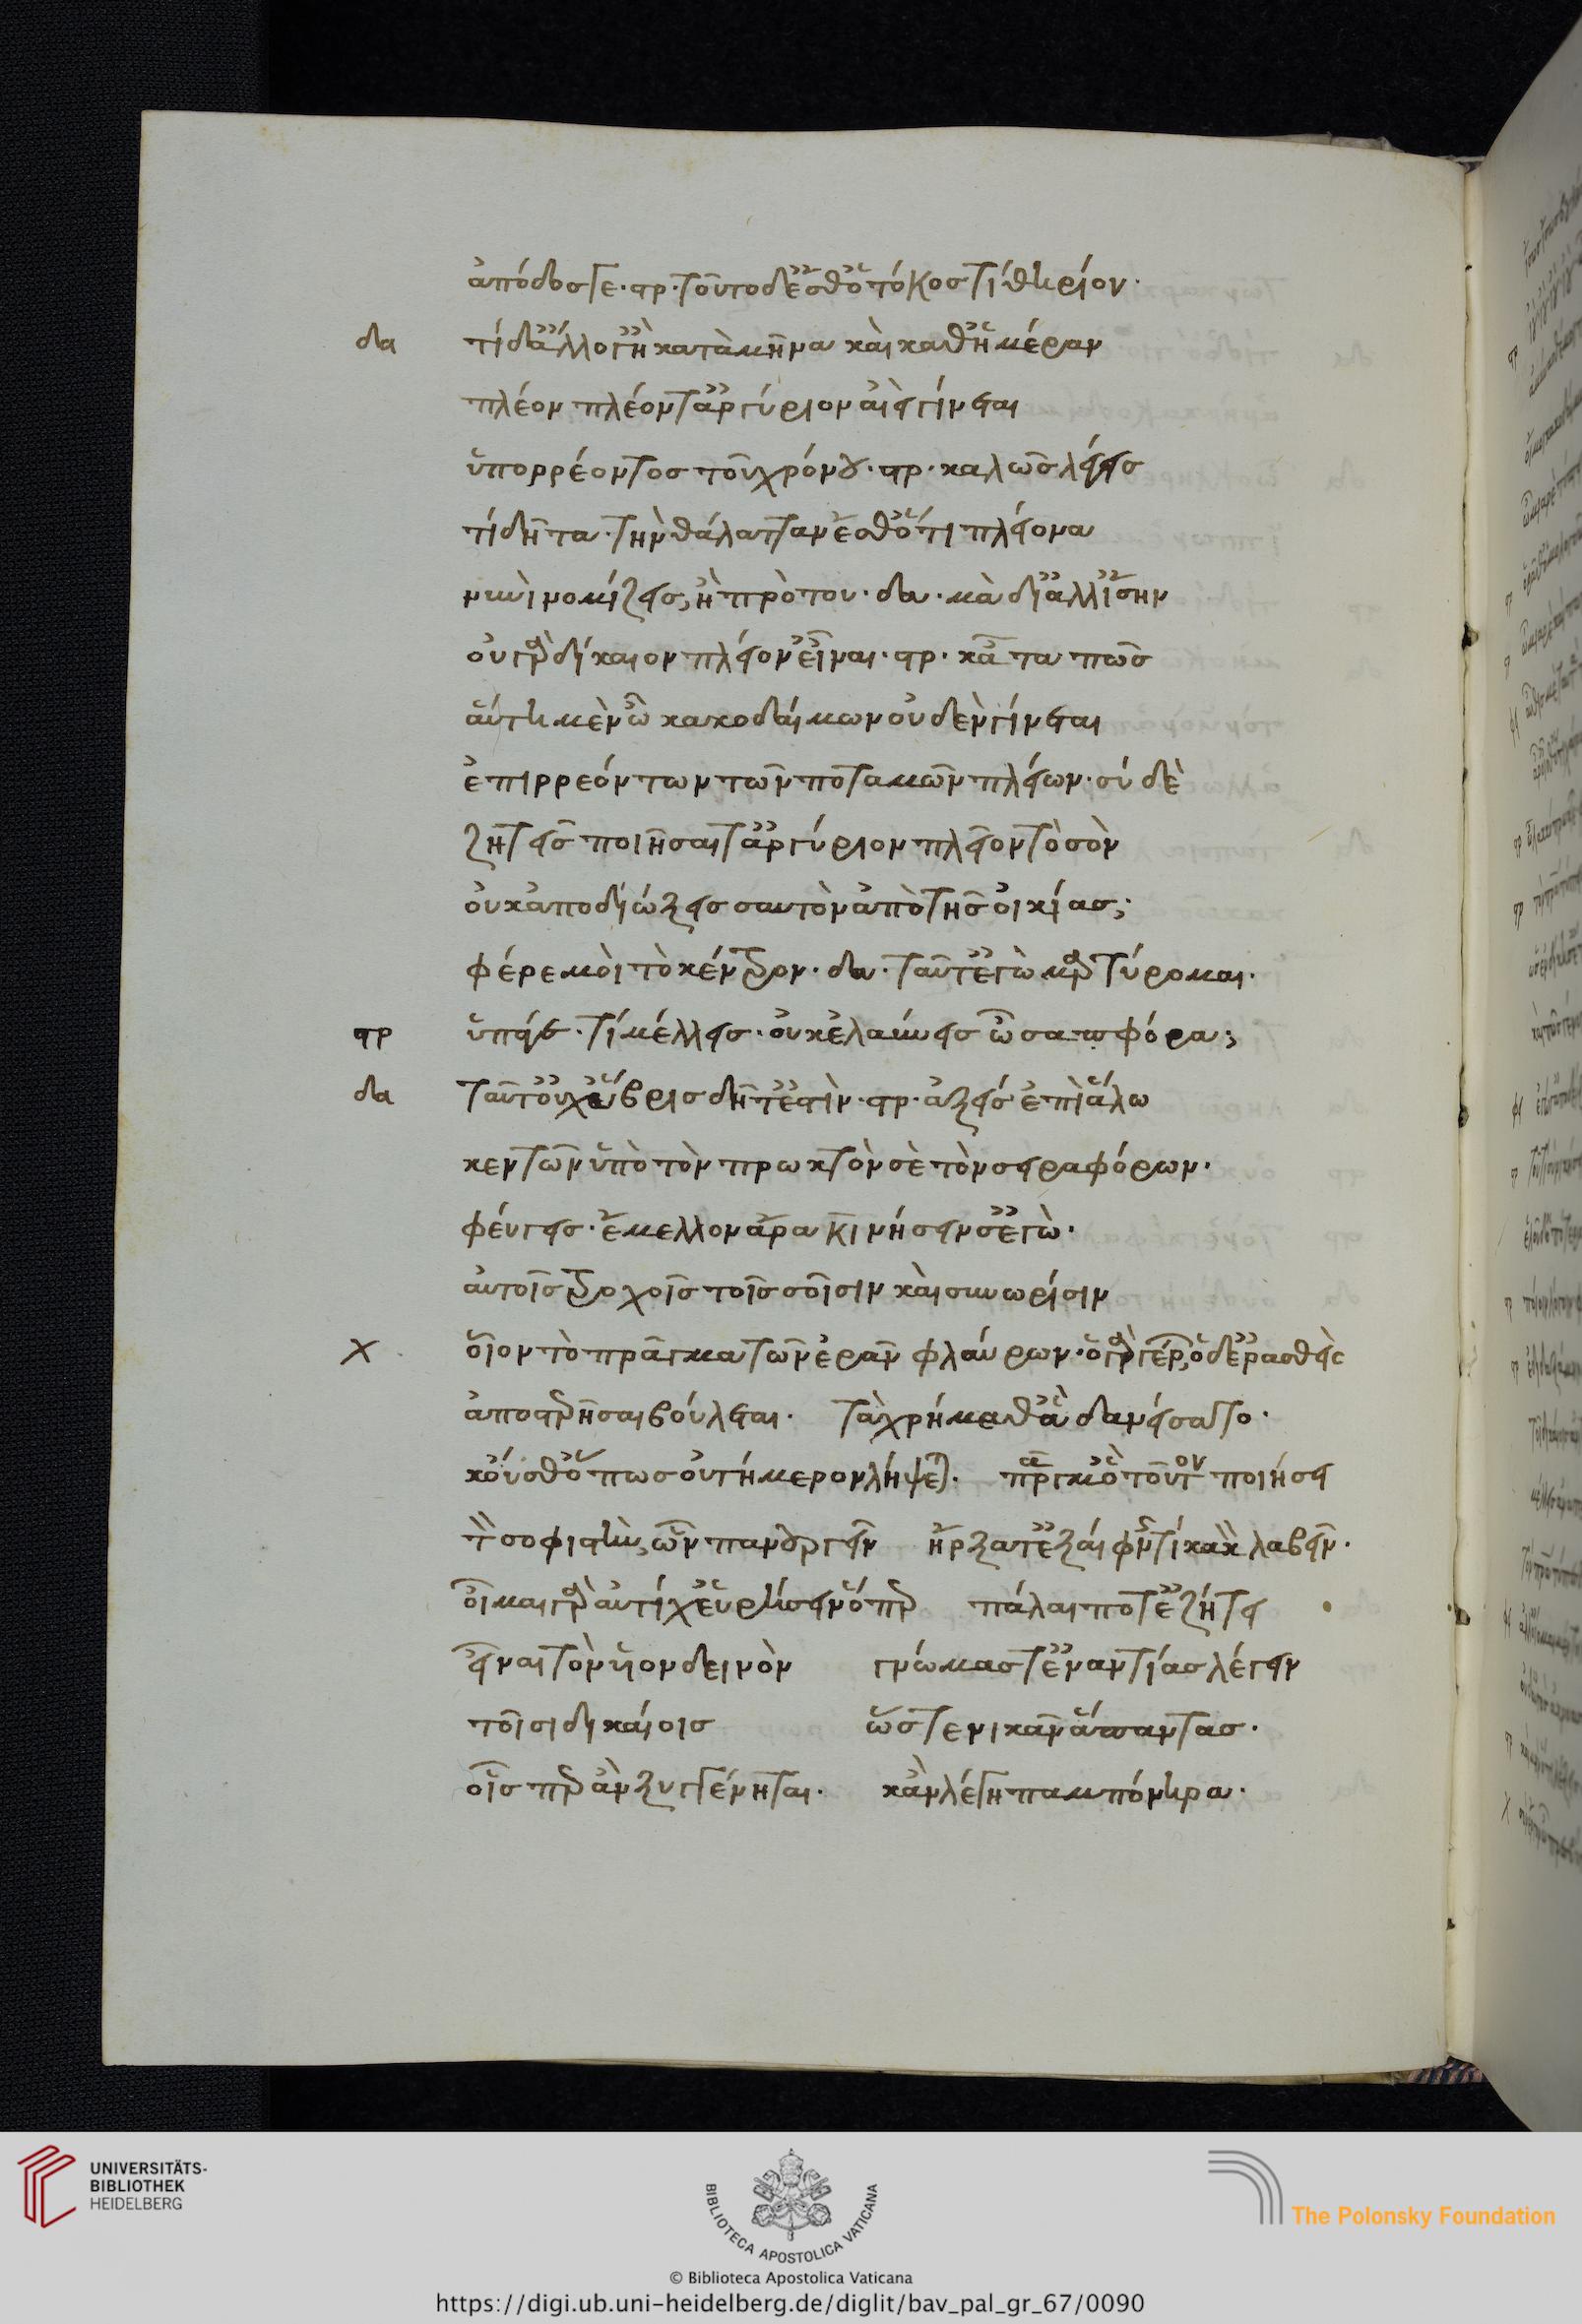 ἀπόδοστε. στρ. τοῦτο δ' ἔσθ' ὁ τόκος τί θηρίον.
δα τί δ' ἄλλο γ' ἢ κατὰ μῆνα καὶ καθ' ἡμέραν
πλέον πλέον τ' ἀργύριον αἰεὶ γίνεται
ὑπορρέοντος τοῦ χρόνου. στρ. καλῶς λέγεις
τί δῆτα. τὴν θάλατταν ἔσθ' ὅτι πλείονα
νυνὶ νομίζεις, ἢ πρὸ τοῦ. δα. μὰ δί' ἀλλ' ἴσην
οὐ γὰρ δίκαιον πλείον' εἶναι. στρ. κᾆτα πῶς
αὕτη μὲν ὦ κακοδαίμων οὐδὲν γίνεται
ἐπιρρεόντων τῶν ποταμῶν πλείων. σὺ δὲ
ζητεῖς ποιῆσαι τ' ἀργύριον πλεῖον τὸ σὸν
οὐκ ἀποδιώξεις σαυτὸν ἀπὸ τῆς οἰκίας;
φέρε μοὶ τὸ κέντρον. δα. ταῦτ' ἐγὼ μαρτύρομαι.
στρ ὕπαγε. τί μέλλεις. οὐκ ἐλαύνεις ὦ σαπφόρα;
δα ταῦτ' οὐχ ὕβρις δῆτ' ἐστίν. στρ. ἄξεις ἐπιάλω
κεντῶν ὑπὸ τὸν πρωκτὸν σὲ τὸν σειραφόρων.
φεύγεις. ἔμελλον ἄρα κινήσειν σ' ἐγὼ.
αὐτοῖς τροχοῖς τοῖς σοῖσιν καὶ συνωρίσιν
χ οἷον τὸ πρᾶγμα τῶν ἐρᾶν φλαύρων. ὁ γὰρ γέρων ὅδ' ἐρασθεὶς
ἀποστερῆσαι βούλεται. τὰ χρήμαθ' ἃ δανείσατο.
κοὐκ ἔσθ' ὅπως οὐ τήμερον λήψεται. πρᾶγμ' ὃ τοῦτον ποιήσει
τὸν σοφιστὴν, ὧν πανουργεῖν ἤρξατ' ἐξαίφνης τί κακὸν λαβεῖν.
οἶμαι γὰρ αὐτίχ' εὑρήσειν ὅπερ πάλαι ποτ' ἐζήτει
εἶναι τὸν υἱον δεινὸν γνώμας τ' ἐναντίας λέγειν
τοῖσι δικαίοις ὥστε νικᾶν ἅπαντας.
οἷσπερ ἂν ξυγγένηται. κἂν λέγη παμπόνηρα.
UNIVERSITÄTS-
BIBLIOTHEK
HEIDELBERG
BIBLIOTECA APOSTOLICA VATICANA
The Polonsky Foundation
© Biblioteca Apostolica Vaticana
https://digi.ub.uni-heidelberg.de/diglit/bav_pal_gr_67/0090